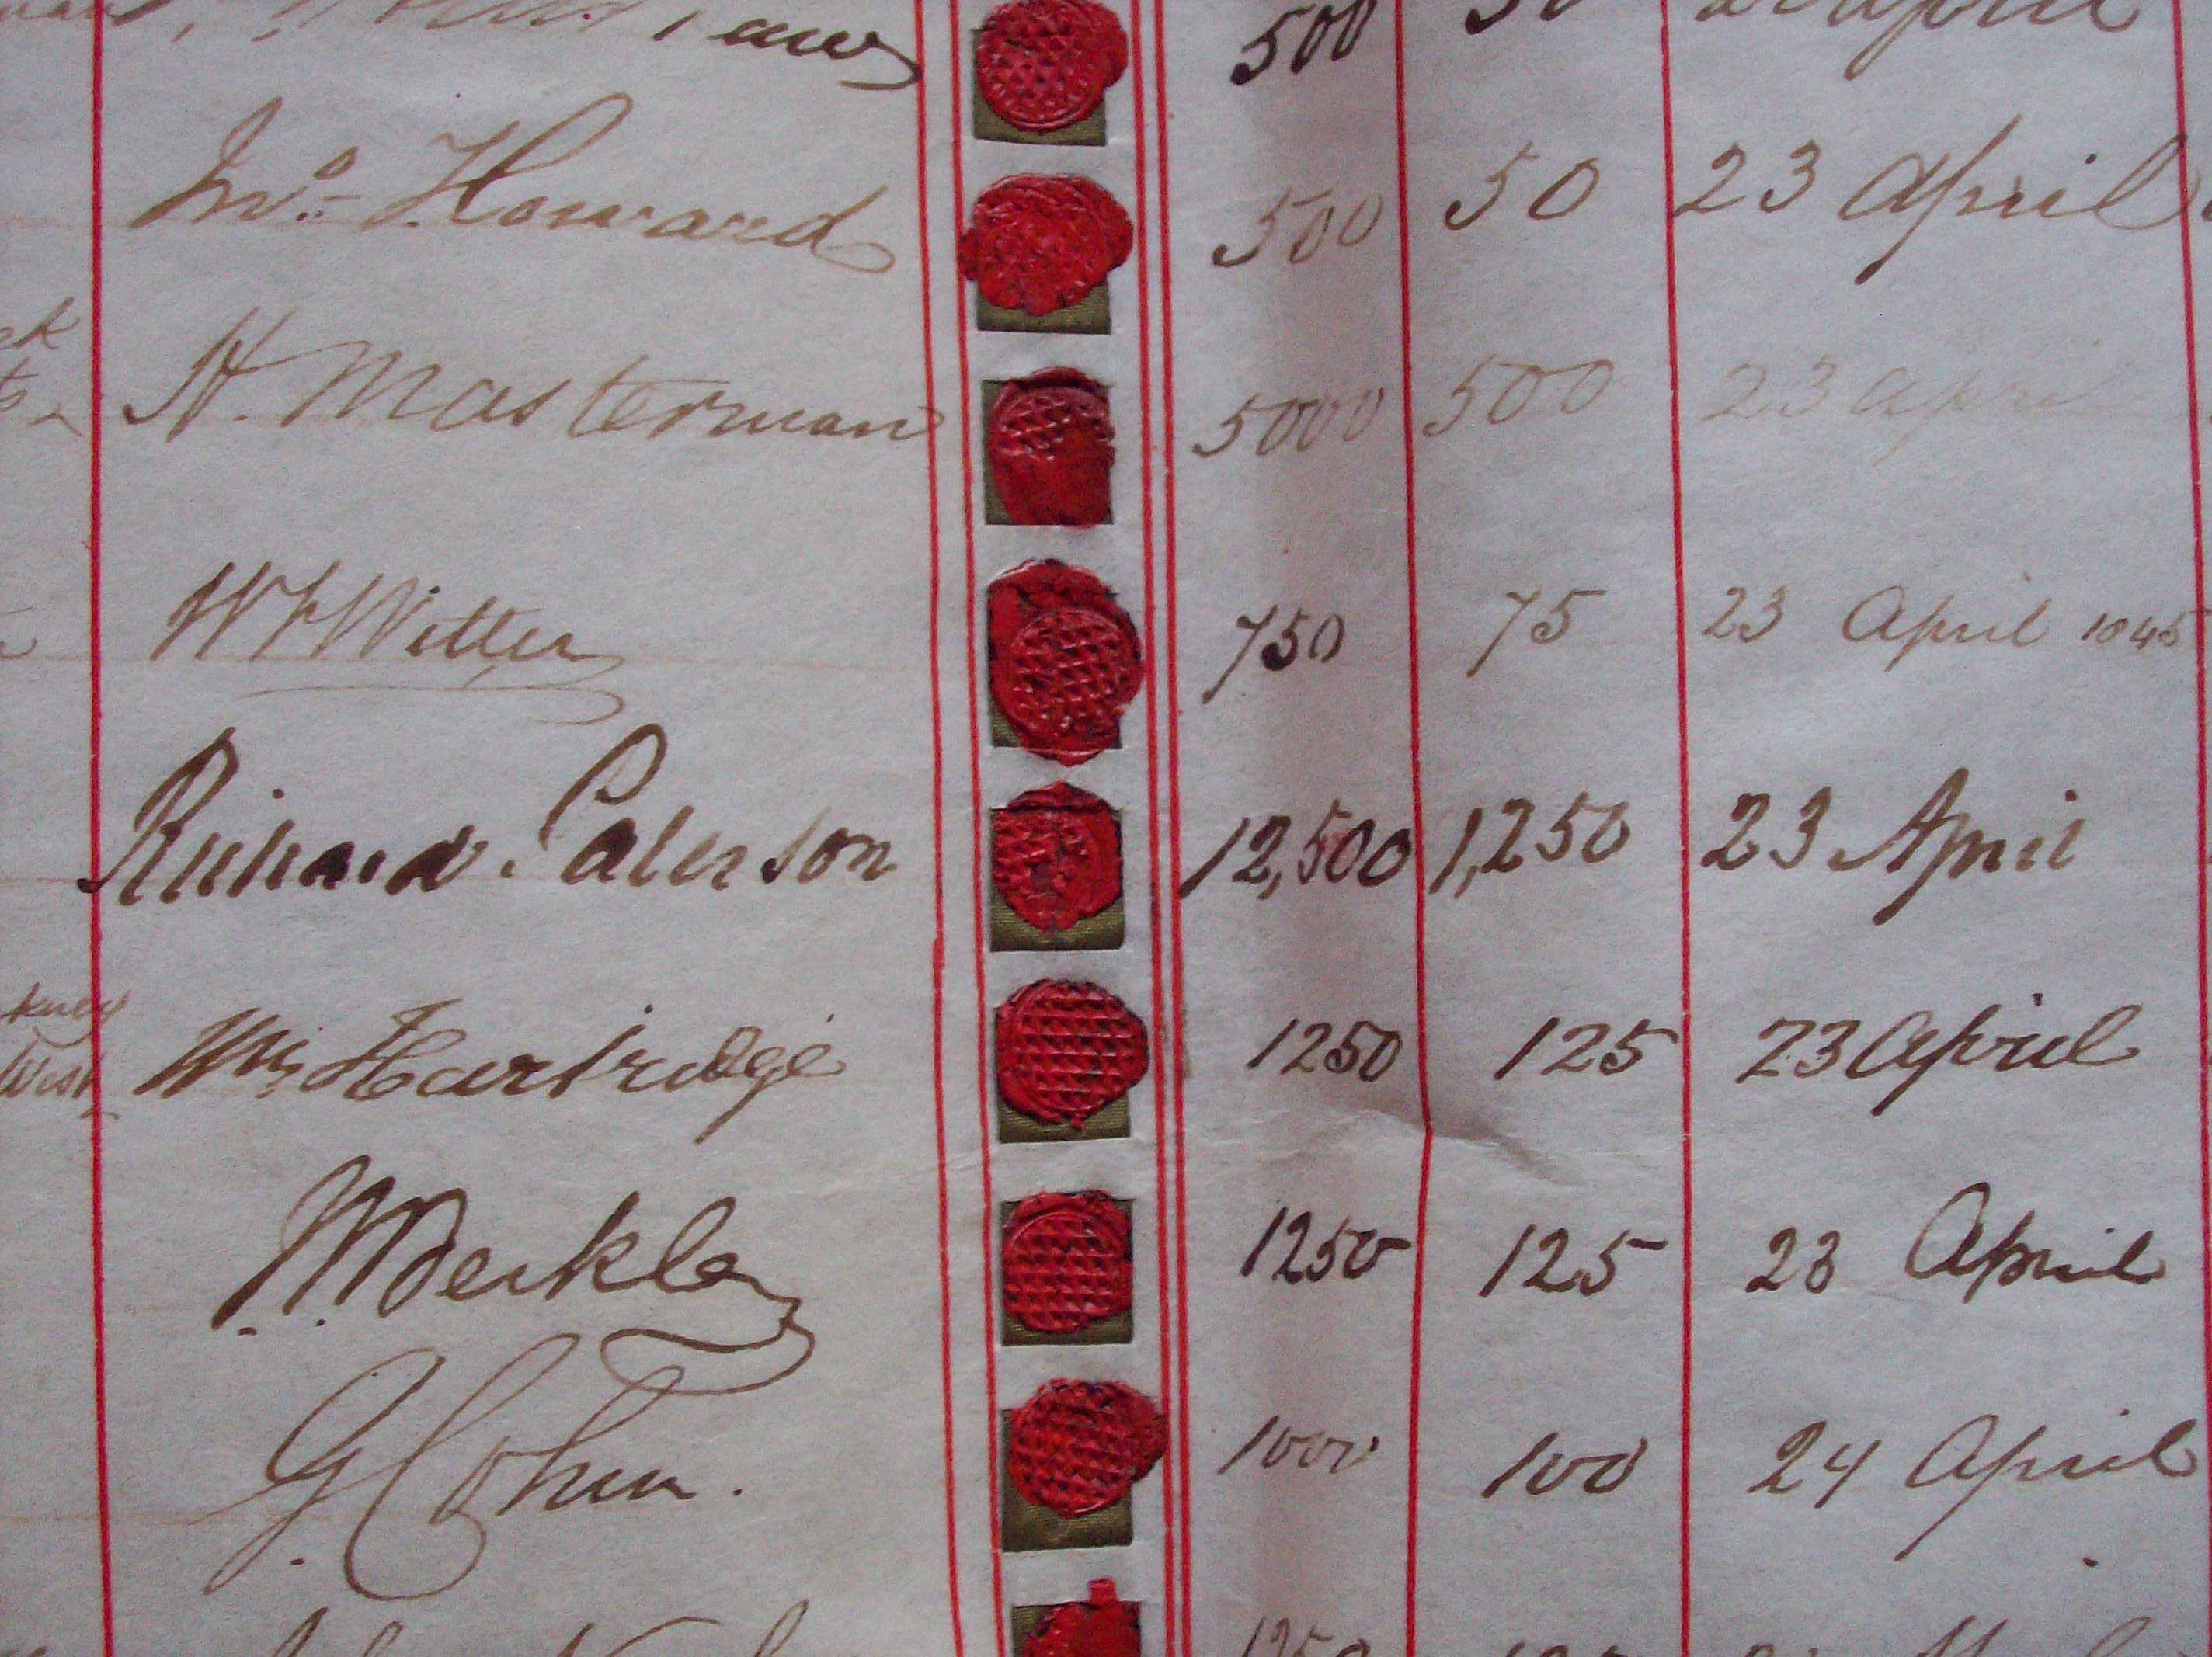 500 50
Jno. Howard 500 50 23 April
H. Masterman 5000 500 23 April
Witter 750 75 23 April 1845
Richard Paterson 12,500 1,250 23 April
Wm Hartridge 1250 125 23 April
1250 125 23 April
G Cohen. 1000 100 24 April
1250